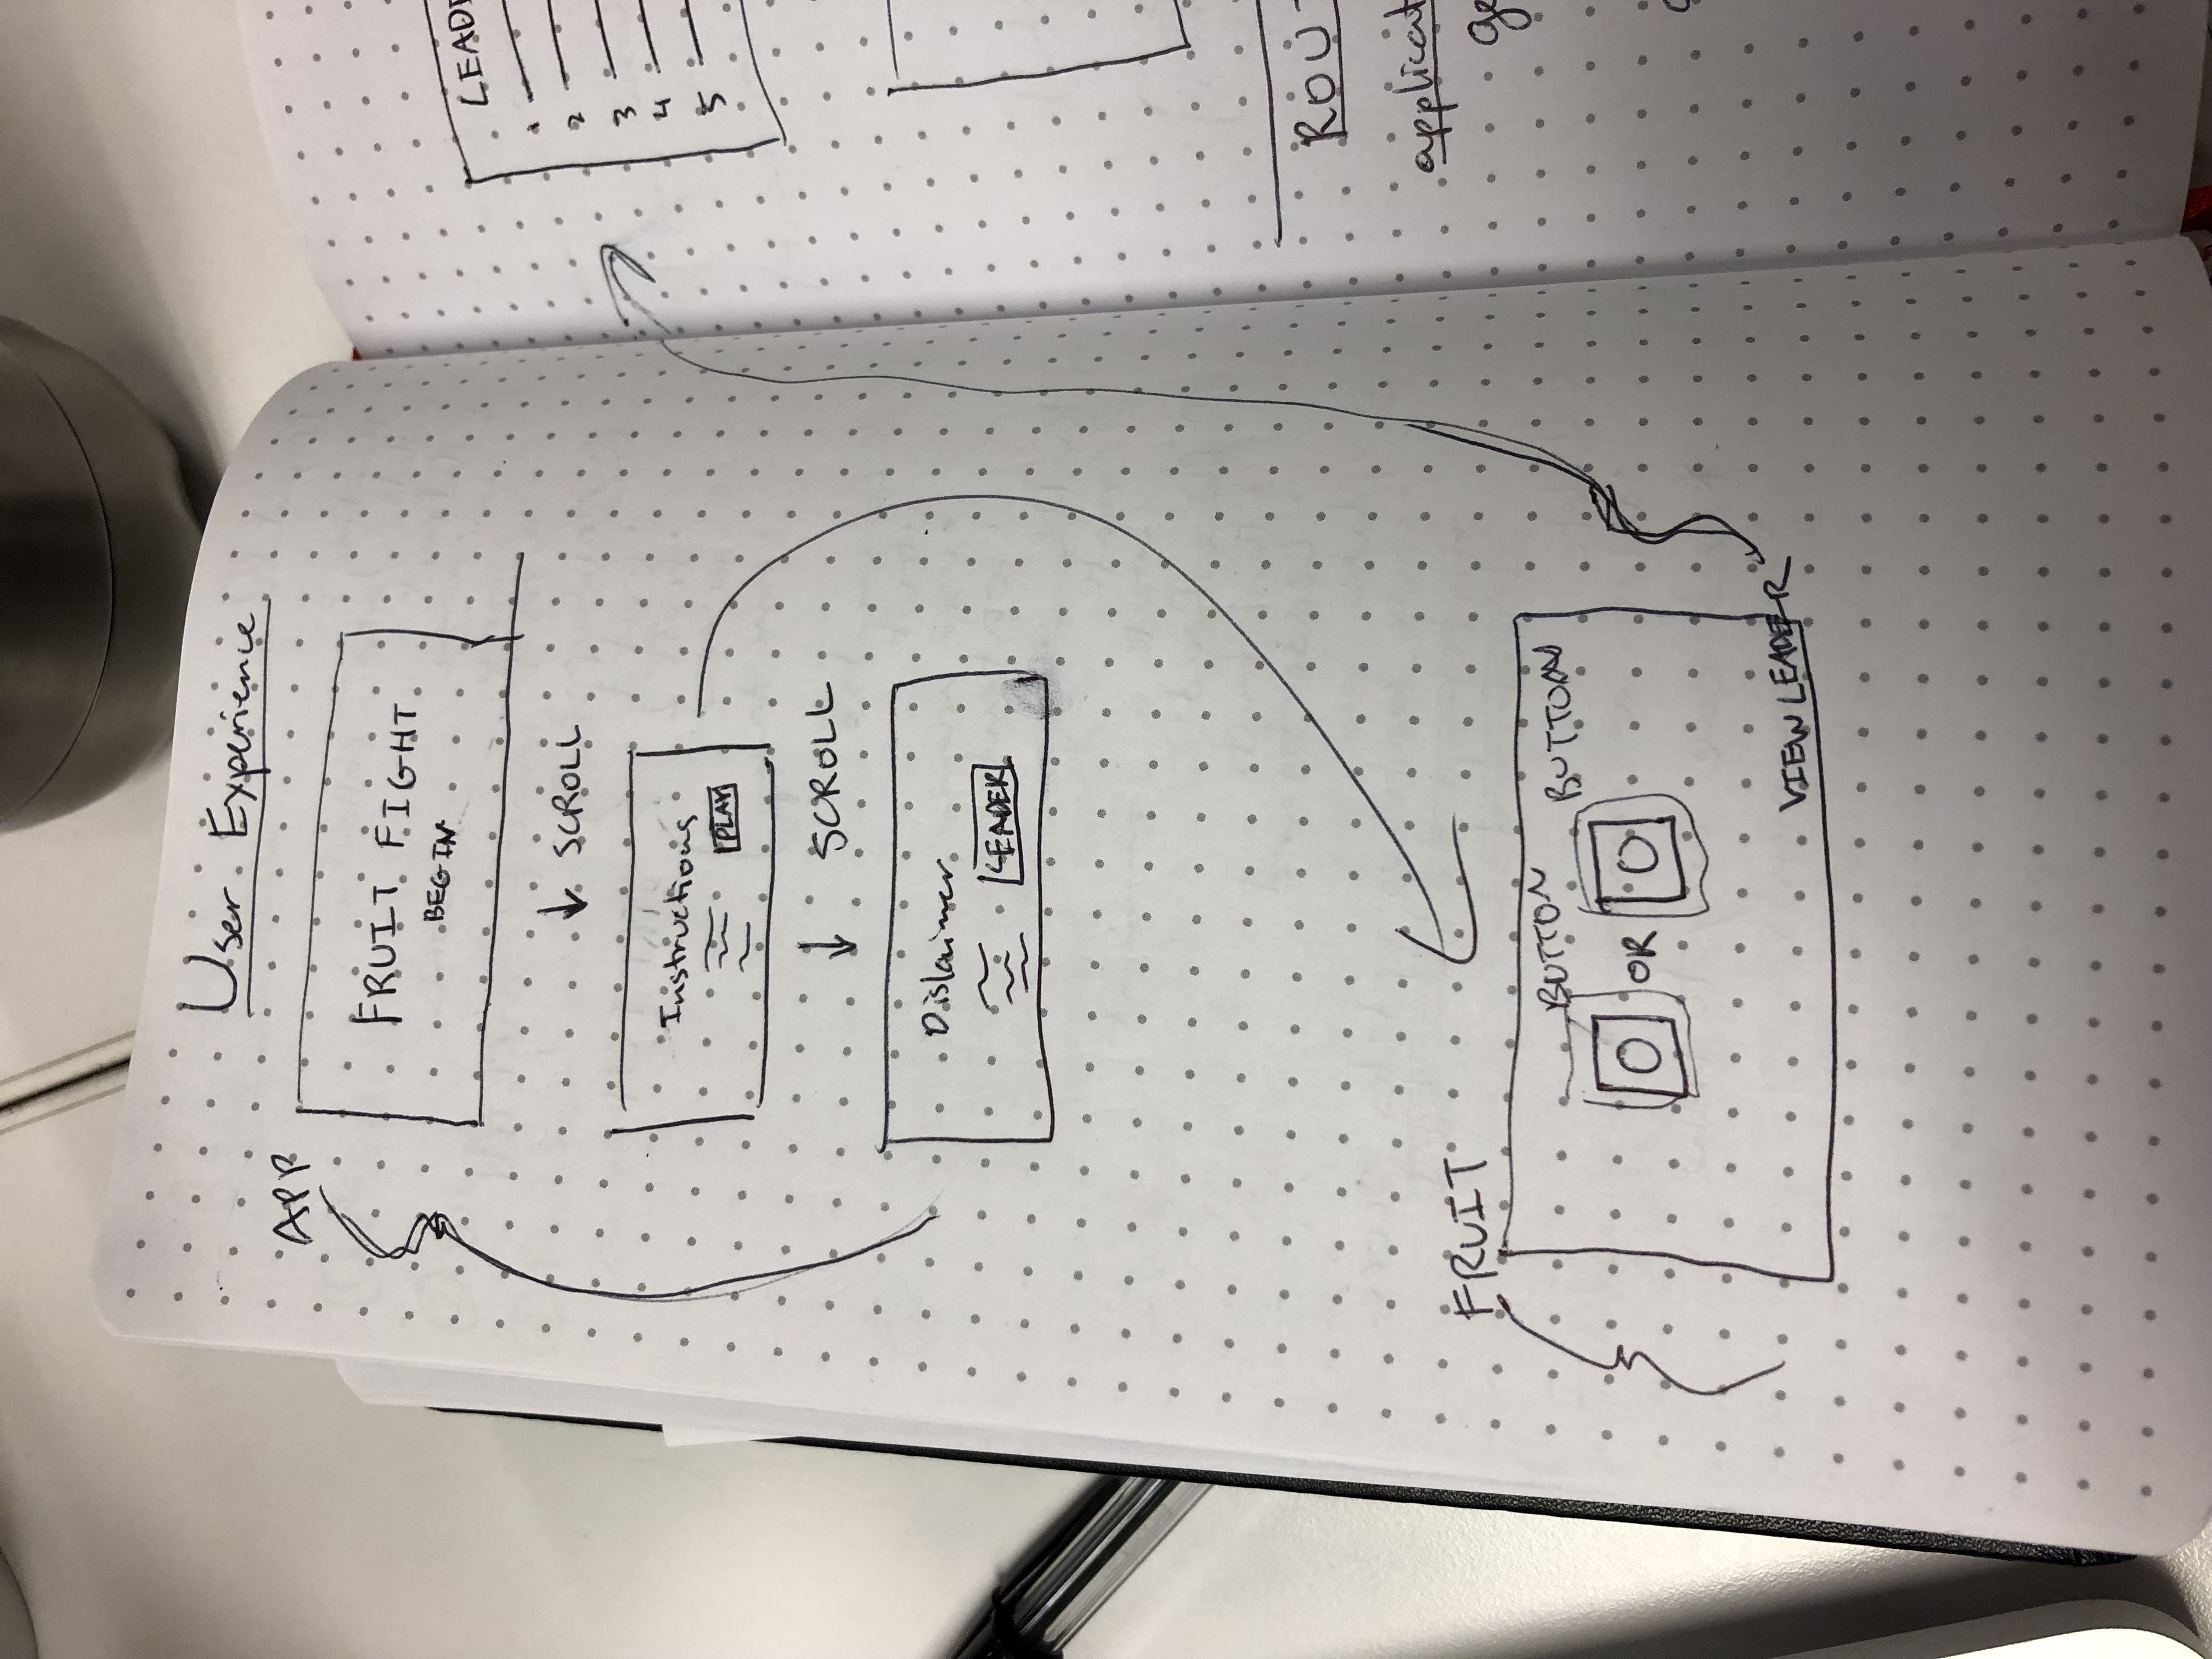 User Experience
APP
FRUIT FIGHT
BEGIN
SCROLL
Instructions
PLAY
SCROLL
Dislaimer
LEADER
FRUIT
BUTTON
BUTTON
OR
VIEW LEADER
LEADE
1
2
3
4
5
ROUT
applicat
ge